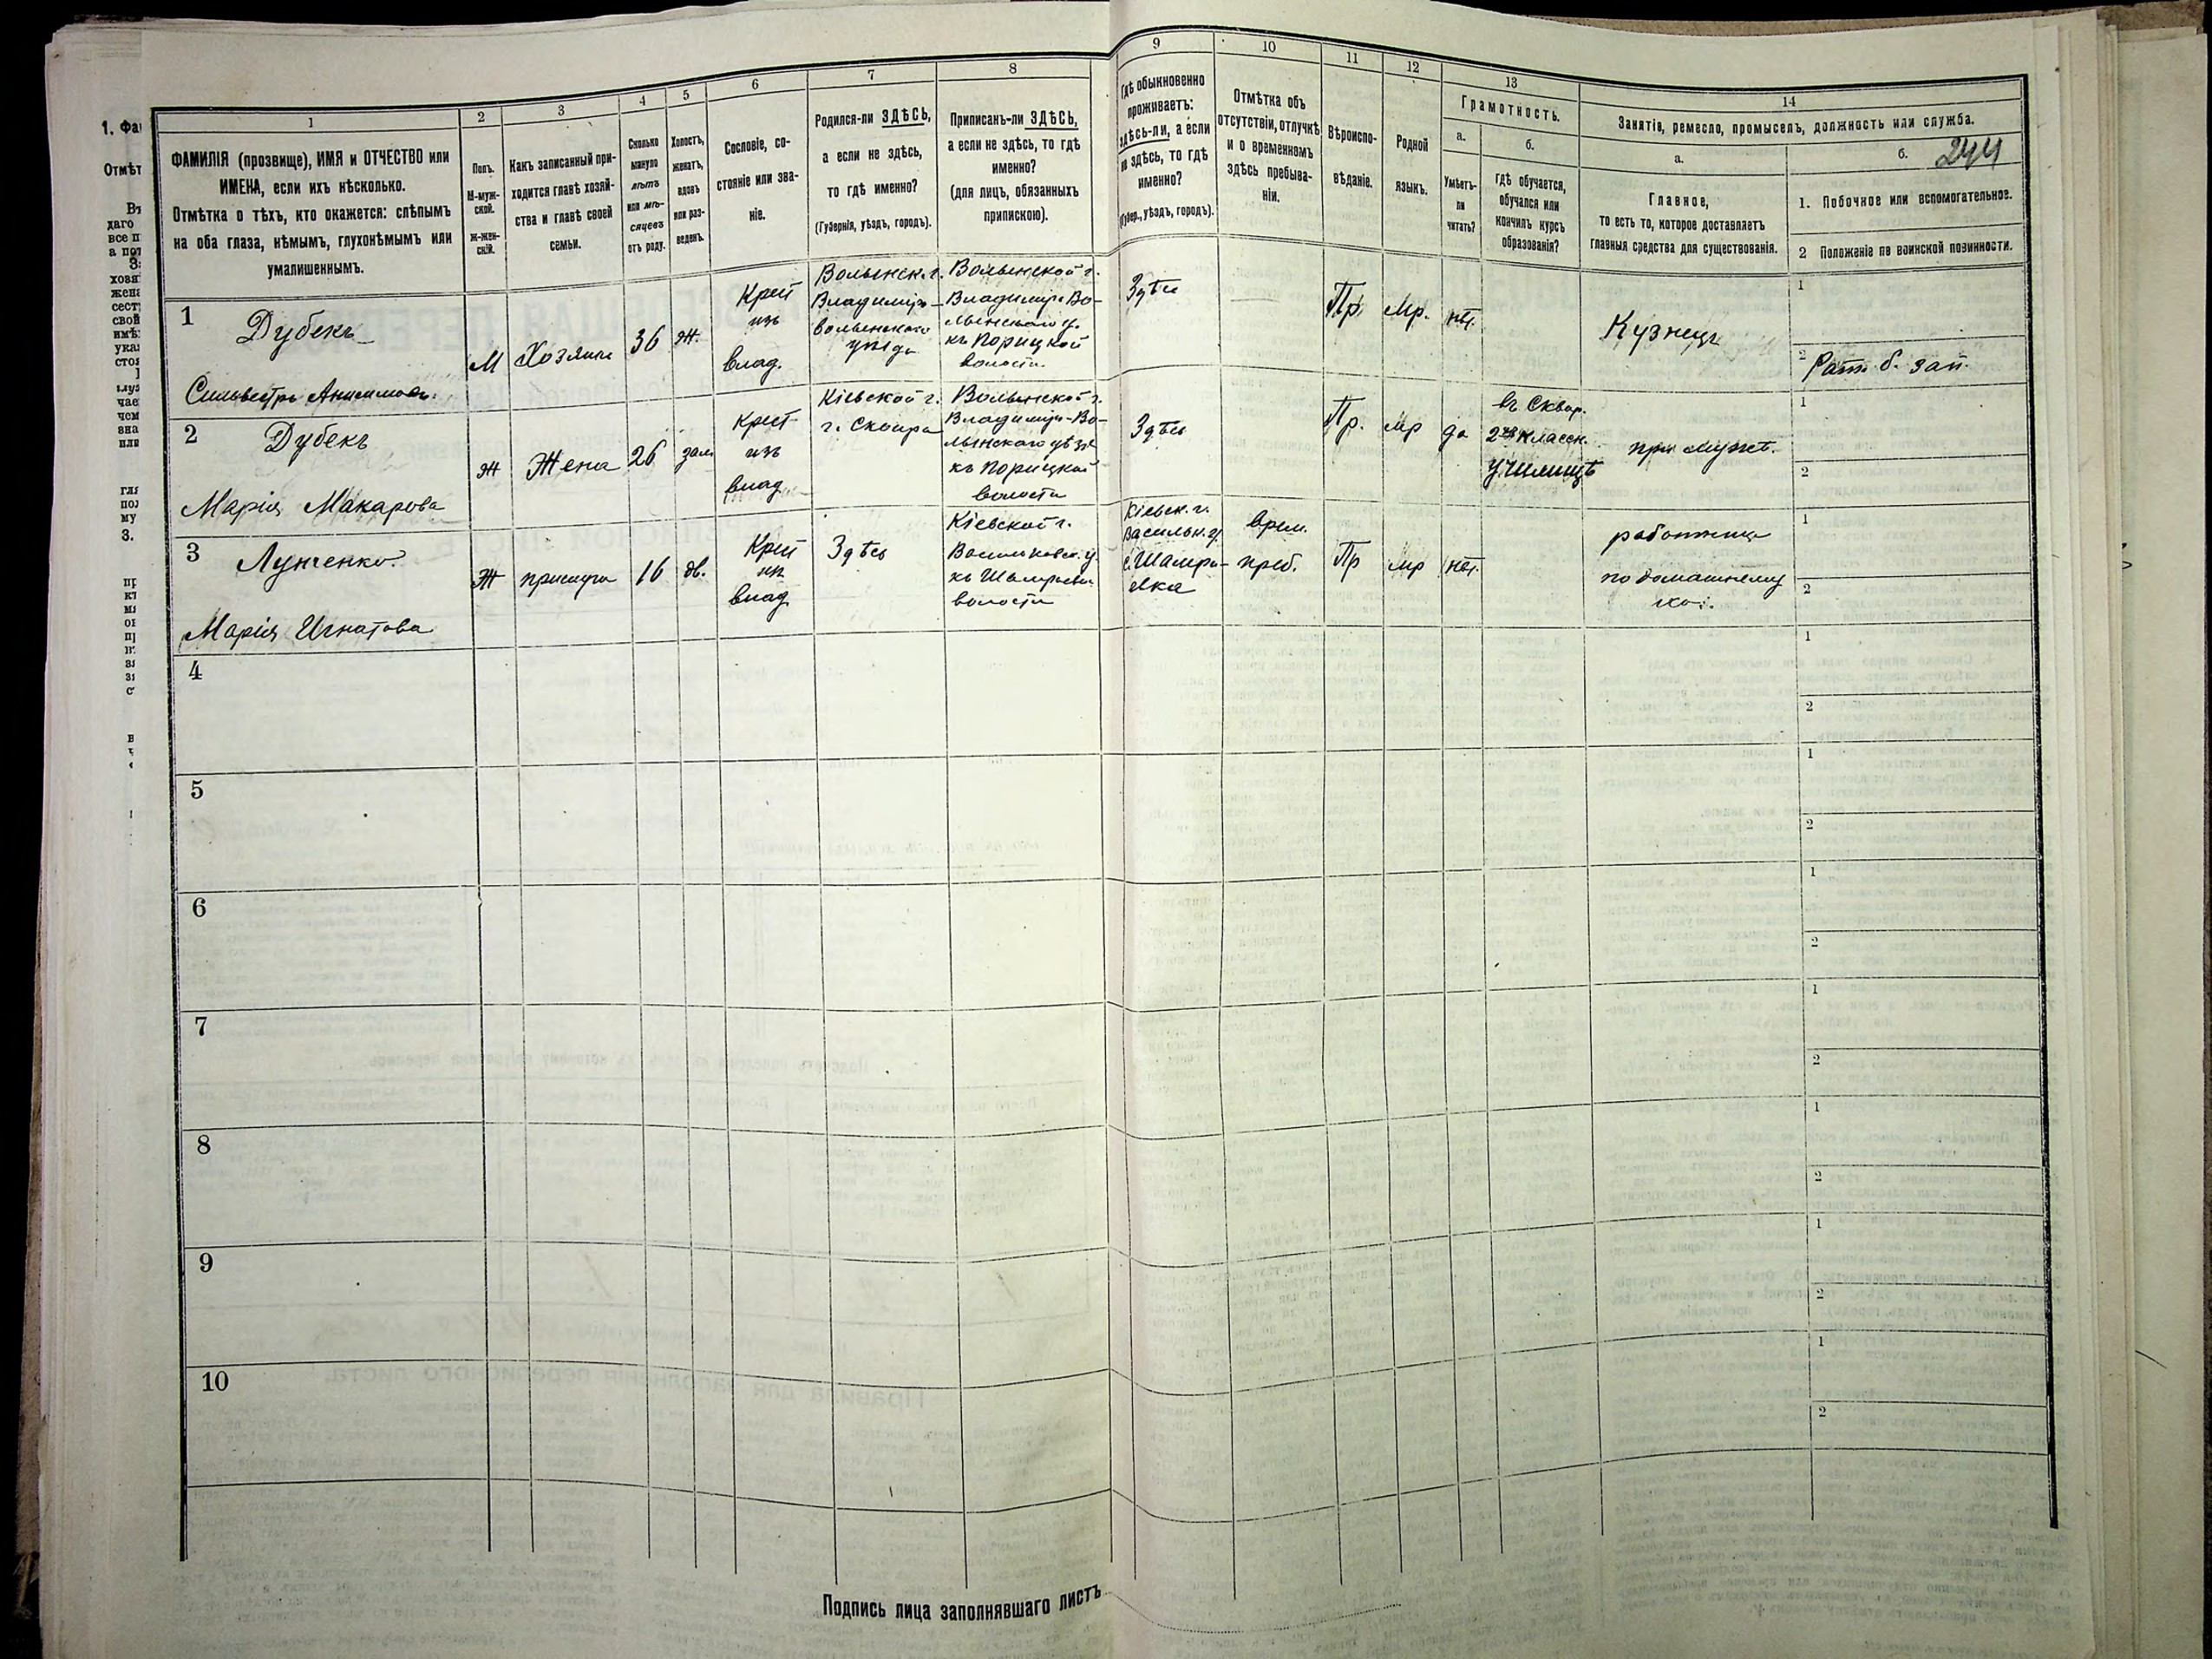 1 2 3 4 5 6 7 8 9 10 11 12 13 14
ФАМИЛІЯ (прозвище), ИМЯ и ОТЧЕСТВО или
ИМЕНА, если ихъ нѣсколько.
Отмѣтка о тѣхъ, кто окажется: слѣпымъ
на оба глаза, нѣмымъ, глухонѣмымъ или
умалишеннымъ.
Полъ.
М-муж-
ской.
Ж-жен-
скій.
Какъ записанный при-
ходится главѣ хозяй-
ства и главѣ своей
семьи.
Сколько
минуло
лѣтъ
или мѣ-
сяцевъ
отъ роду.
Холостъ,
женатъ,
вдовъ
или раз-
веденъ.
Сословіе, со-
стояніе или зва-
ніе.
Родился-ли ЗДѢСЬ,
а если не здѣсь,
то гдѣ именно?
(Губернія, уѣздъ, городъ).
Приписанъ-ли ЗДѢСЬ,
а если не здѣсь, то гдѣ
именно?
(для лицъ, обязанныхъ
припискою).
Гдѣ обыкновенно
проживаетъ:
здѣсь-ли, а если
не здѣсь, то гдѣ
именно?
(Губер., уѣздъ, городъ).
Отмѣтка объ
отсутствіи, отлучкѣ
и о временномъ
здѣсь пребыва-
ніи.
Вѣроиспо-
вѣданіе.
Родной
языкъ.
Грамотность.
а.
Умѣетъ-
ли
читать?
б.
гдѣ обучается,
обучался или
кончилъ курсъ
образованія?
Занятія, ремесло, промыселъ, должность или служба.
а.
Главное,
то есть то, которое доставляетъ
главныя средства для существованія.
б.
244
1. Побочное или вспомогательное.
2 Положеніе по воинской повинности.
1
Дубекъ
Сильвестръ Анисимовъ.
М
Хозяинъ
36
ж.
Крест
изъ
влад.
Волынск. г.
Владиміро-
волынскаго
уѣзда
Волынской г.
Владимиро Во-
лынскаго у.
къ Порицкой
волости.
Здѣсь
Пр.
Мр.
нѣт.
Кузнецъ
1
2
Ратн. б. зап.
2
Дубекъ
Марія Макарова
Ж
Жена
26
зам.
Крест
изъ
влад
Кіевской г.
г. Сквира
Волынской г.
Владиміро-Во-
лынскаго уѣзда
къ Порицкой
волости
Здѣсь
Пр.
Мр
да
въ Сквир.
2хъ классн.
училищѣ
при мужѣ.
1
2
3
Лунченко
Марія Игнатова
Ж
прислуга
16
дв.
Крест
из
влад
Здѣсь
Кіевской г.
Васильковск. у.
къ
волости
Кіевск. г.
Васильк. у.
с.
врем.
преб.
Пр
мр
нѣт.
работница
по домашнему
хоз.
1
2
4
1
2
5
1
2
6
1
2
7
1
2
8
1
2
9
1
2
10
1
2
Подпись лица заполнявшаго листъ